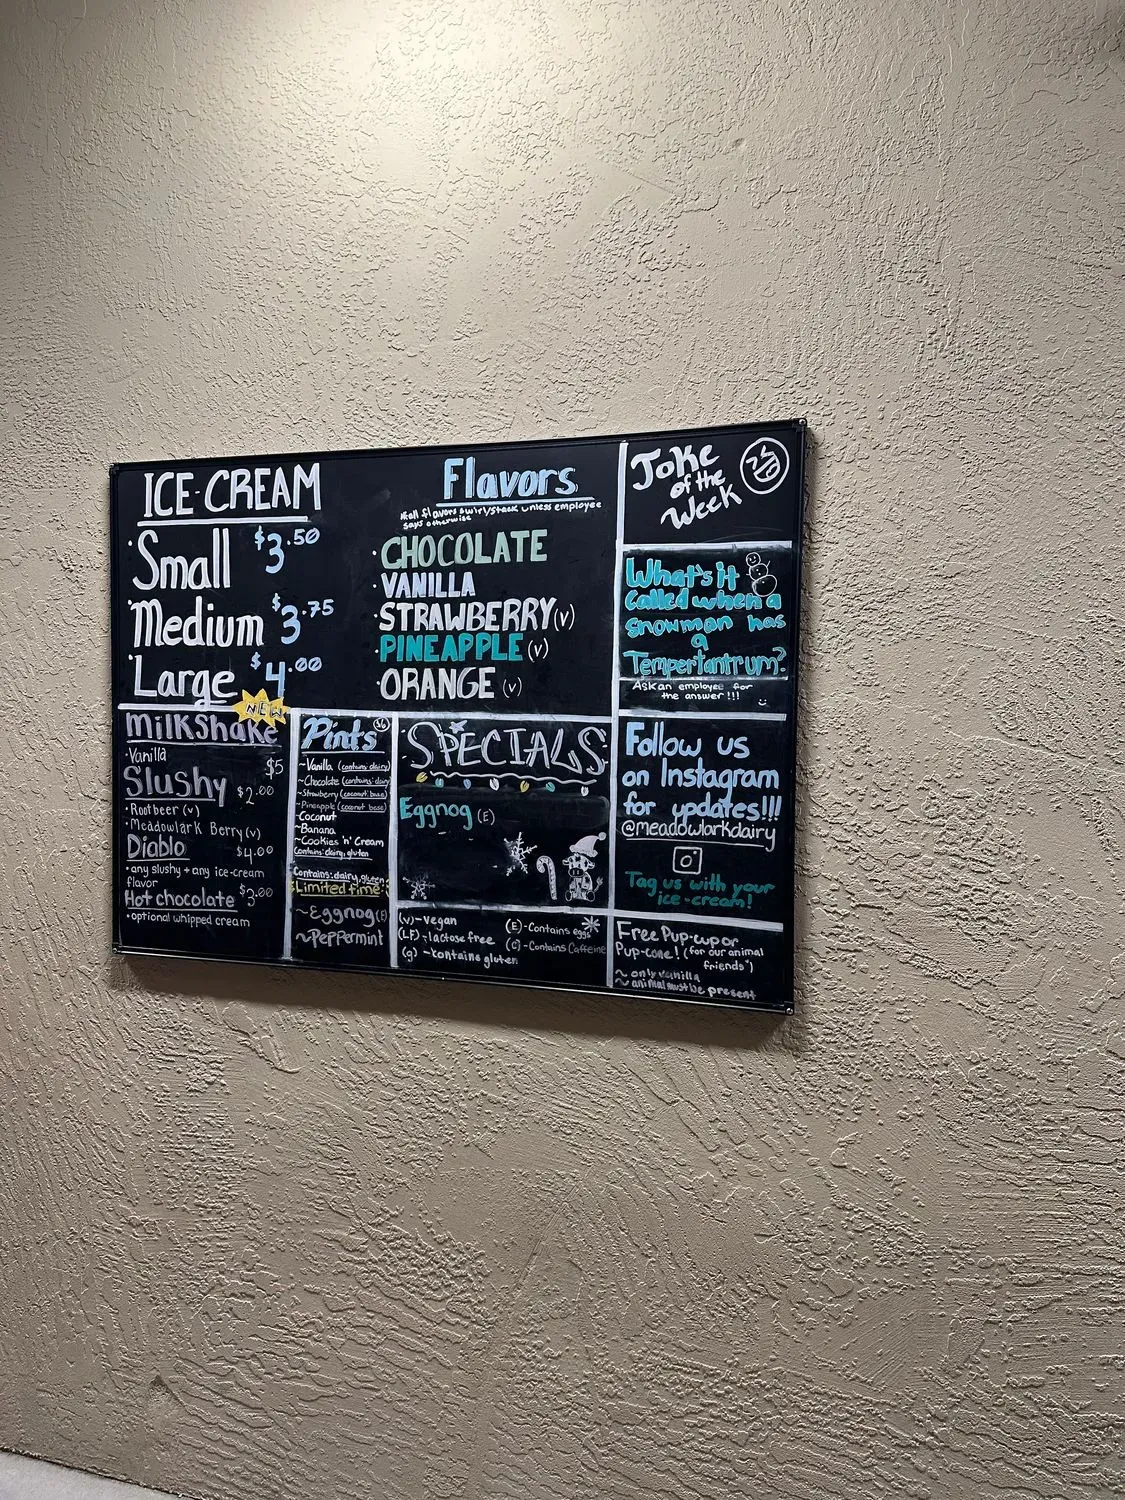 ICE CREAM
· Small $3.50
· Medium $3.75
· Large $4.00
Flavors
*All flavors swirl/stack unless employee
says otherwise
· CHOCOLATE
· VANILLA
· STRAWBERRY (v)
· PINEAPPLE (v)
· ORANGE (v)
Joke
of the
Week
What's it
called when a
snowman has
a
Tempertantrum?
Ask an employee for
the answer!!!
NEW
Milkshake
· Vanilla $5
Slushy $2.00
· Rootbeer (v)
· Meadowlark Berry (v)
Diablo $4.00
· any slushy + any ice-cream
flavor
Hot chocolate $3.00
· optional whipped cream
Pints $6
~ Vanilla (contains: dairy)
~ Chocolate (contains: dairy)
~ Strawberry (coconut base)
~ Pineapple (coconut base)
~ Coconut
~ Banana
~ Cookies 'n' Cream
Contains: dairy, gluten
Contains: dairy, gluten
Limited time:
~ Eggnog (E)
~ Peppermint
SPECIALS
Eggnog (E)
(v) - vegan
(LF) - lactose free
(g) - contains gluten
(E) - Contains eggs
(C) - Contains Caffeine
Follow us
on Instagram
for updates!!!
@meadowlarkdairy
Tag us with your
ice-cream!
Free Pup-cup or
Pup-cone! (for our animal
friends")
~ only vanilla
~ animal must be present